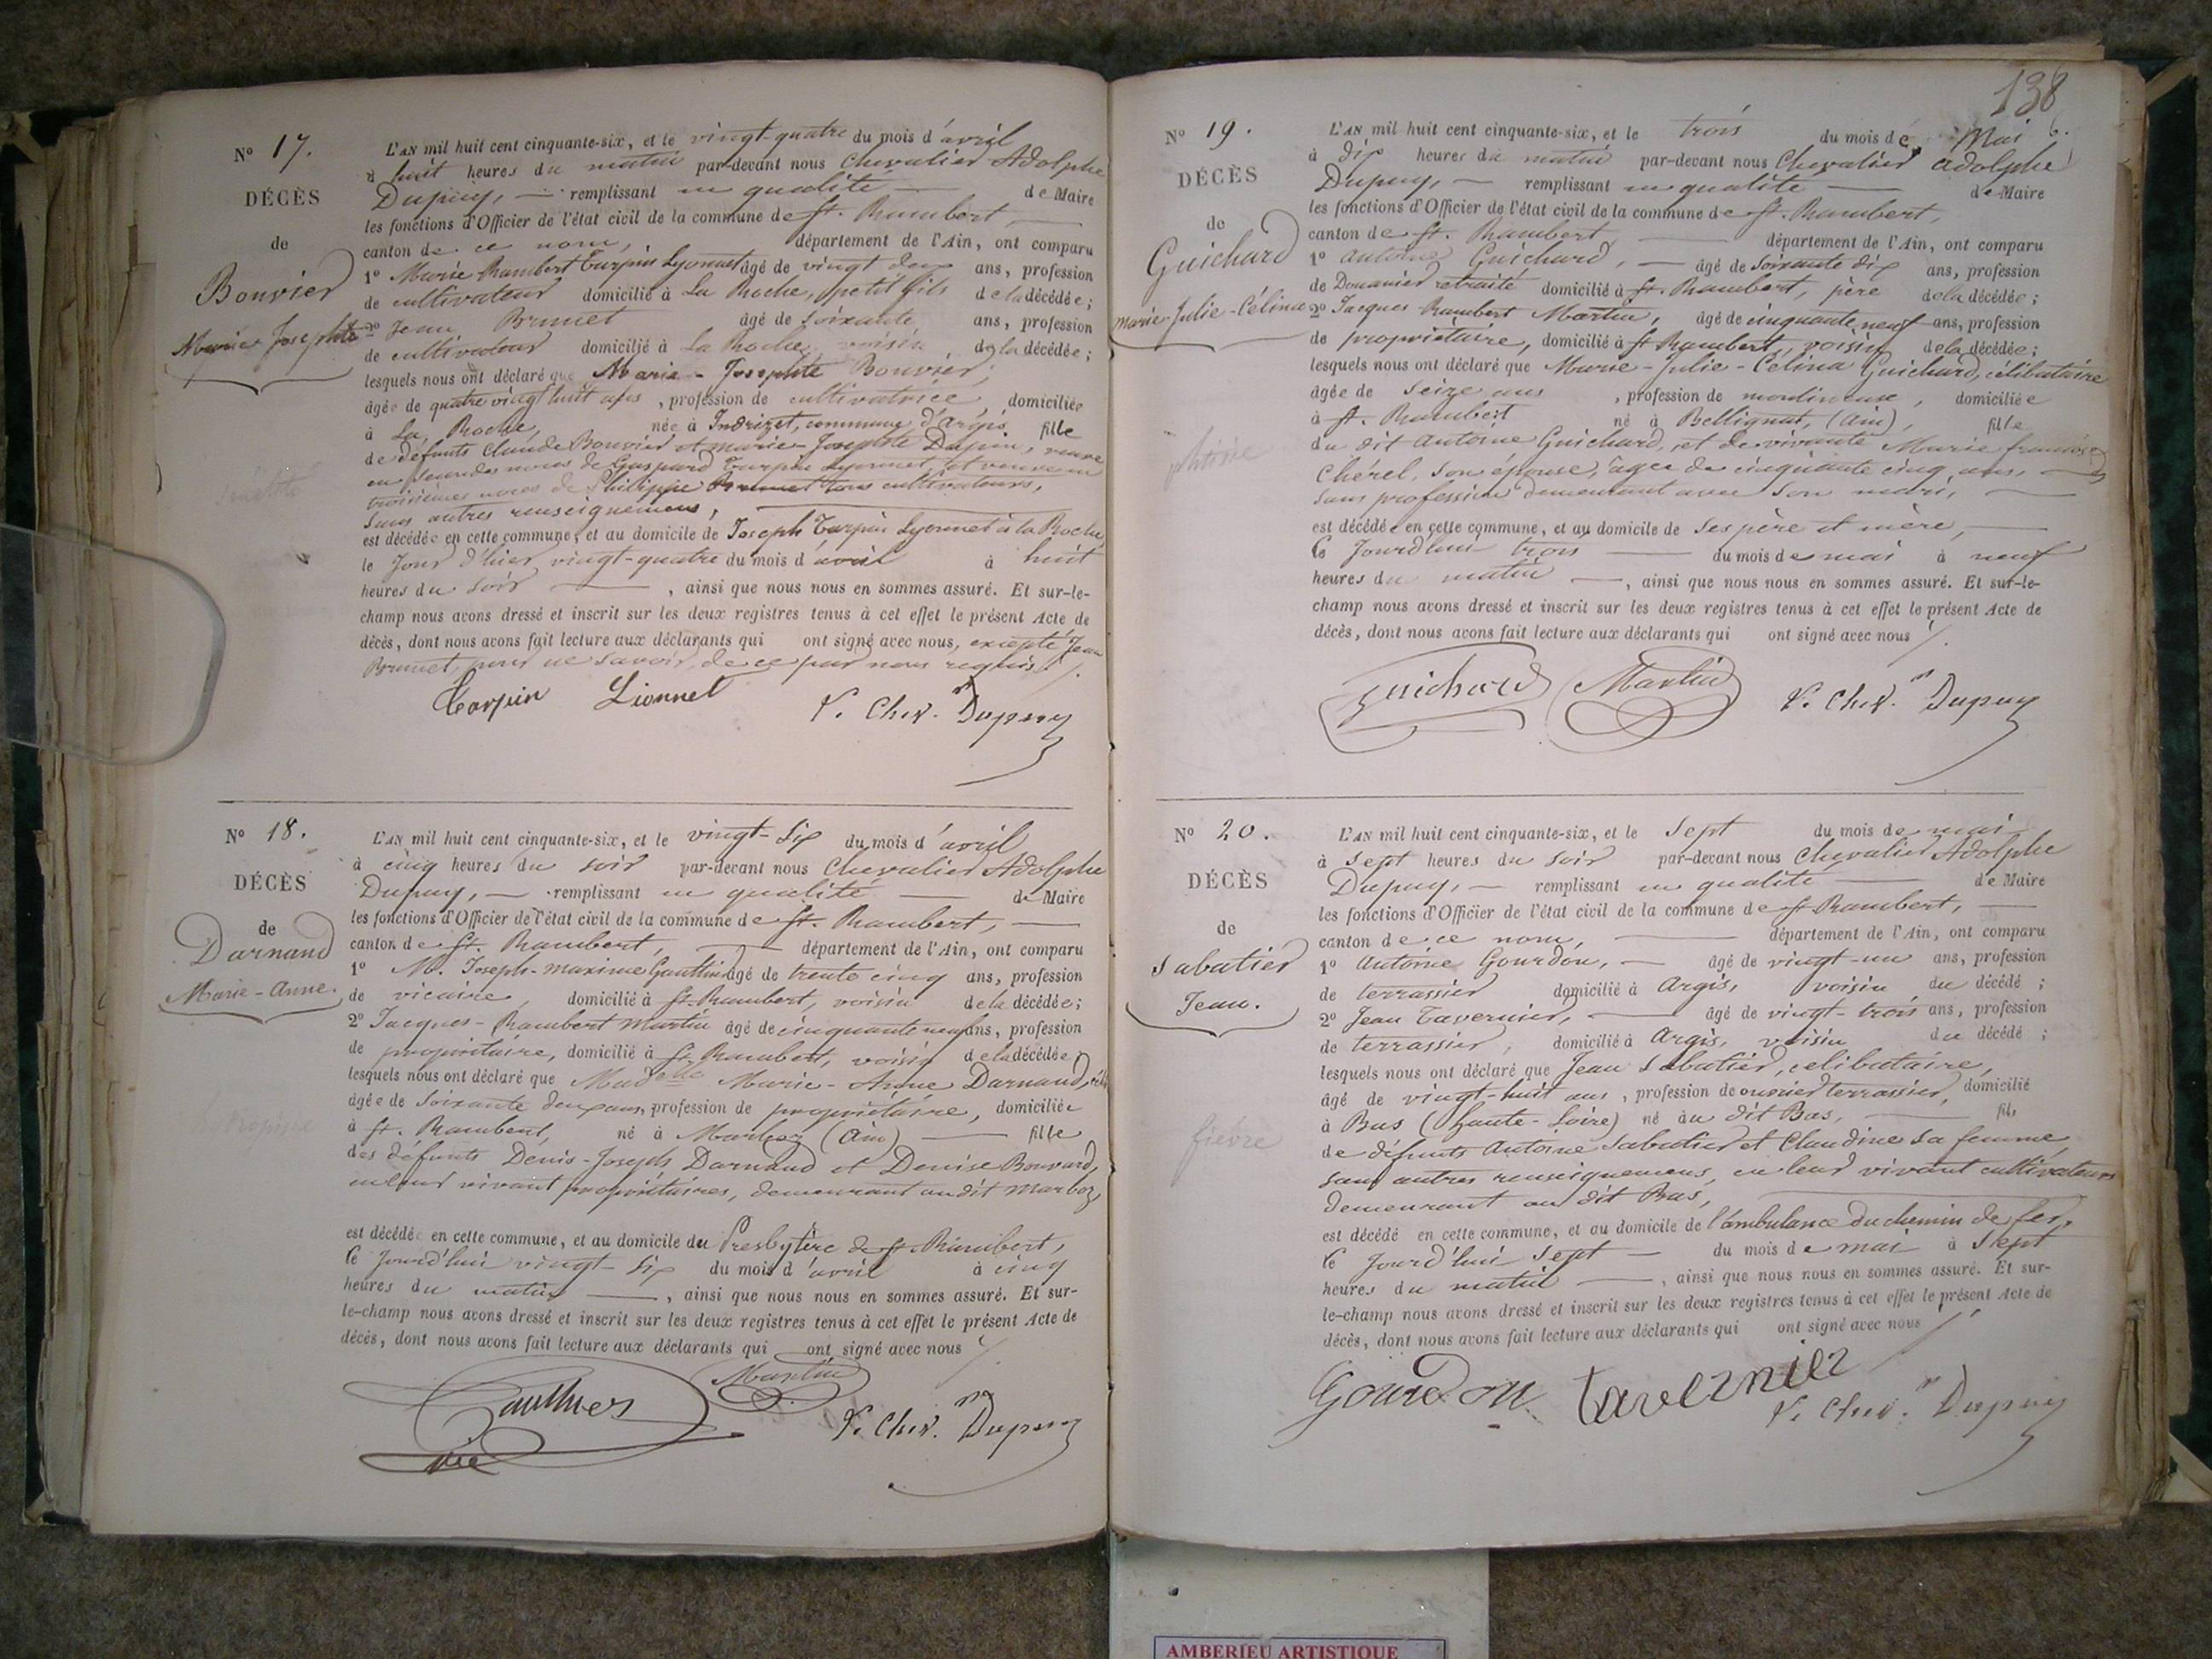 N° 17.
DÉCÈS
de
Bouvier
Marie Josephte
L'AN mil huit cent cinquante-six, et le vingt-quatre du mois d'avril
à huit heures du matin par-devant nous Chevalier Adolphe
Dupuy, — remplissant en qualité — de Maire
les fonctions d'Officier de l'état civil de la commune de St. Rambert —
canton de ce nom, département de l'Ain, ont comparu
1° Marie Rambert Turpin Lyonnet âgé de vingt deux ans, profession
de cultivateur domicilié à La Roche, petit fils de la décédée;
2° Jean Brunet âgé de soixante ans, profession
de cultivateur domicilié à La Roche, voisin de la décédée;
lesquels nous ont déclaré que Marie-Josephte Bouvier,
âgée de quatre vingt huit ans, profession de cultivatrice, domiciliée
à La Roche, née à Indrizet, commune d'Argis, fille
de défunts Claude Bouvier et Marie-Josephte Dupin, veuve
en secondes noces de Gaspard Turpin Lyonnet, et veuve en
troisièmes noces de Philippe Brunet tous cultivateurs,
sans autres renseignemens, —
est décédée en cette commune, et au domicile de Joseph Turpin Lyonnet à la Roche
le jour d'hier vingt-quatre du mois d'avril à huit
heures du soir —, ainsi que nous nous en sommes assuré. Et sur-le-
champ nous avons dressé et inscrit sur les deux registres tenus à cet effet le présent Acte de
décès, dont nous avons fait lecture aux déclarants qui ont signé avec nous, excepté Jean
Brunet, pour ne savoir, de ce par nous requis /.
Torpin Lionnet V. Cher. Dupuy
N° 18.
DÉCÈS
de
Darnand
Marie-Anne.
L'AN mil huit cent cinquante-six, et le vingt-six du mois d'avril
à cinq heures du soir par-devant nous Chevalier Adolphe
Dupuy, — remplissant en qualité — de Maire
les fonctions d'Officier de l'état civil de la commune de St. Rambert, —
canton de St. Rambert, — département de l'Ain, ont comparu
1° M. Joseph-Maxime Gauthier âgé de trente cinq ans, profession
de vicaire, domicilié à St. Rambert, voisin de la décédée;
2° Jacques-Rambert Martin âgé de cinquante neuf ans, profession
de propriétaire, domicilié à St. Rambert, voisin de la décédée;
lesquels nous ont déclaré que Madelle Marie-Anne Darnand,
âgée de soixante deux ans, profession de propriétaire, domiciliée
à St. Rambert, né à Marboz (Ain) — fille
des défunts Denis-Joseph Darnand et Denise Bouvard,
en leur vivant propriétaires, demeurant au dit Marboz,
est décédée en cette commune, et au domicile du Presbytère de St. Rambert,
le jourd'hui vingt-six du mois d'avril à cinq
heures du matin —, ainsi que nous nous en sommes assuré. Et sur-
le-champ nous avons dressé et inscrit sur les deux registres tenus à cet effet le présent Acte de
décès, dont nous avons fait lecture aux déclarants qui ont signé avec nous /.
Gauthier Martin
vic V. Cher. Dupuy
138
N° 19.
DÉCÈS
de
Guichard
Marie-Julie-Célina
phtisie
L'AN mil huit cent cinquante-six, et le trois du mois de Mai
à dix heures du matin par-devant nous Chevalier Adolphe
Dupuy, — remplissant en qualité — de Maire
les fonctions d'Officier de l'état civil de la commune de St. Rambert,
canton de St. Rambert — département de l'Ain, ont comparu
1° Antoine Guichard, — âgé de soixante dix ans, profession
de Douanier retraité domicilié à St. Rambert, père de la décédée;
2° Jacques-Rambert Martin, âgé de cinquante neuf ans, profession
de propriétaire, domicilié à St Rambert, voisin de la décédée;
lesquels nous ont déclaré que Marie-Julie-Célina Guichard, célibataire
âgée de seize ans, profession de moulineuse, domiciliée
à St. Rambert né à Bellignat, (Ain), fille
du dit Antoine Guichard, et de vivante Marie françoise
Chérel, son épouse, âgée de cinquante cinq ans, —
sans profession demeurant avec son mari, —
est décédée en cette commune, et au domicile de ses père et mère, —
le jourd'hui trois — du mois de mai à neuf
heures du matin —, ainsi que nous nous en sommes assuré. Et sur-le-
champ nous avons dressé et inscrit sur les deux registres tenus à cet effet le présent Acte de
décès, dont nous avons fait lecture aux déclarants qui ont signé avec nous /.
Guichard Martin V. Cher. Dupuy
N° 20.
DÉCÈS
de
Sabatier
Jean.
fièvre
L'AN mil huit cent cinquante-six, et le sept du mois de mai
à sept heures du soir par-devant nous Chevalier Adolphe
Dupuy, — remplissant en qualité — de Maire
les fonctions d'Officier de l'état civil de la commune de St Rambert, —
canton de ce nom, — département de l'Ain, ont comparu
1° Antoine Gourdon, — âgé de vingt-un ans, profession
de terrassier domicilié à Argis, voisin du décédé;
2° Jean Tavernier, — âgé de vingt-trois ans, profession
de terrassier, domicilié à Argis, voisin du décédé;
lesquels nous ont déclaré que Jean Sabatier, célibataire,
âgé de vingt-huit ans, profession de ouvrier terrassier, domicilié
à Bas (haute-Loire) né au dit Bas, — fils
de défunts Antoine Sabatier et Claudine sa femme
sans autres renseignemens, en leur vivant cultivateurs
demeurant au dit Bas, —
est décédé en cette commune, et au domicile de l'ambulance du chemin de fer,
le jourd'hui sept — du mois de mai à sept
heures du matin —, ainsi que nous nous en sommes assuré. Et sur-
le-champ nous avons dressé et inscrit sur les deux registres tenus à cet effet le présent Acte de
décès, dont nous avons fait lecture aux déclarants qui ont signé avec nous /.
Gourdon tavernier V. Cher. Dupuy
AMBERIEU ARTISTIQUE